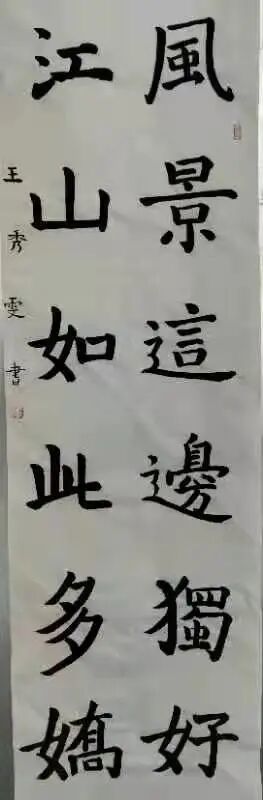 風景這邊獨好
江山如此多嬌
王秀雯書